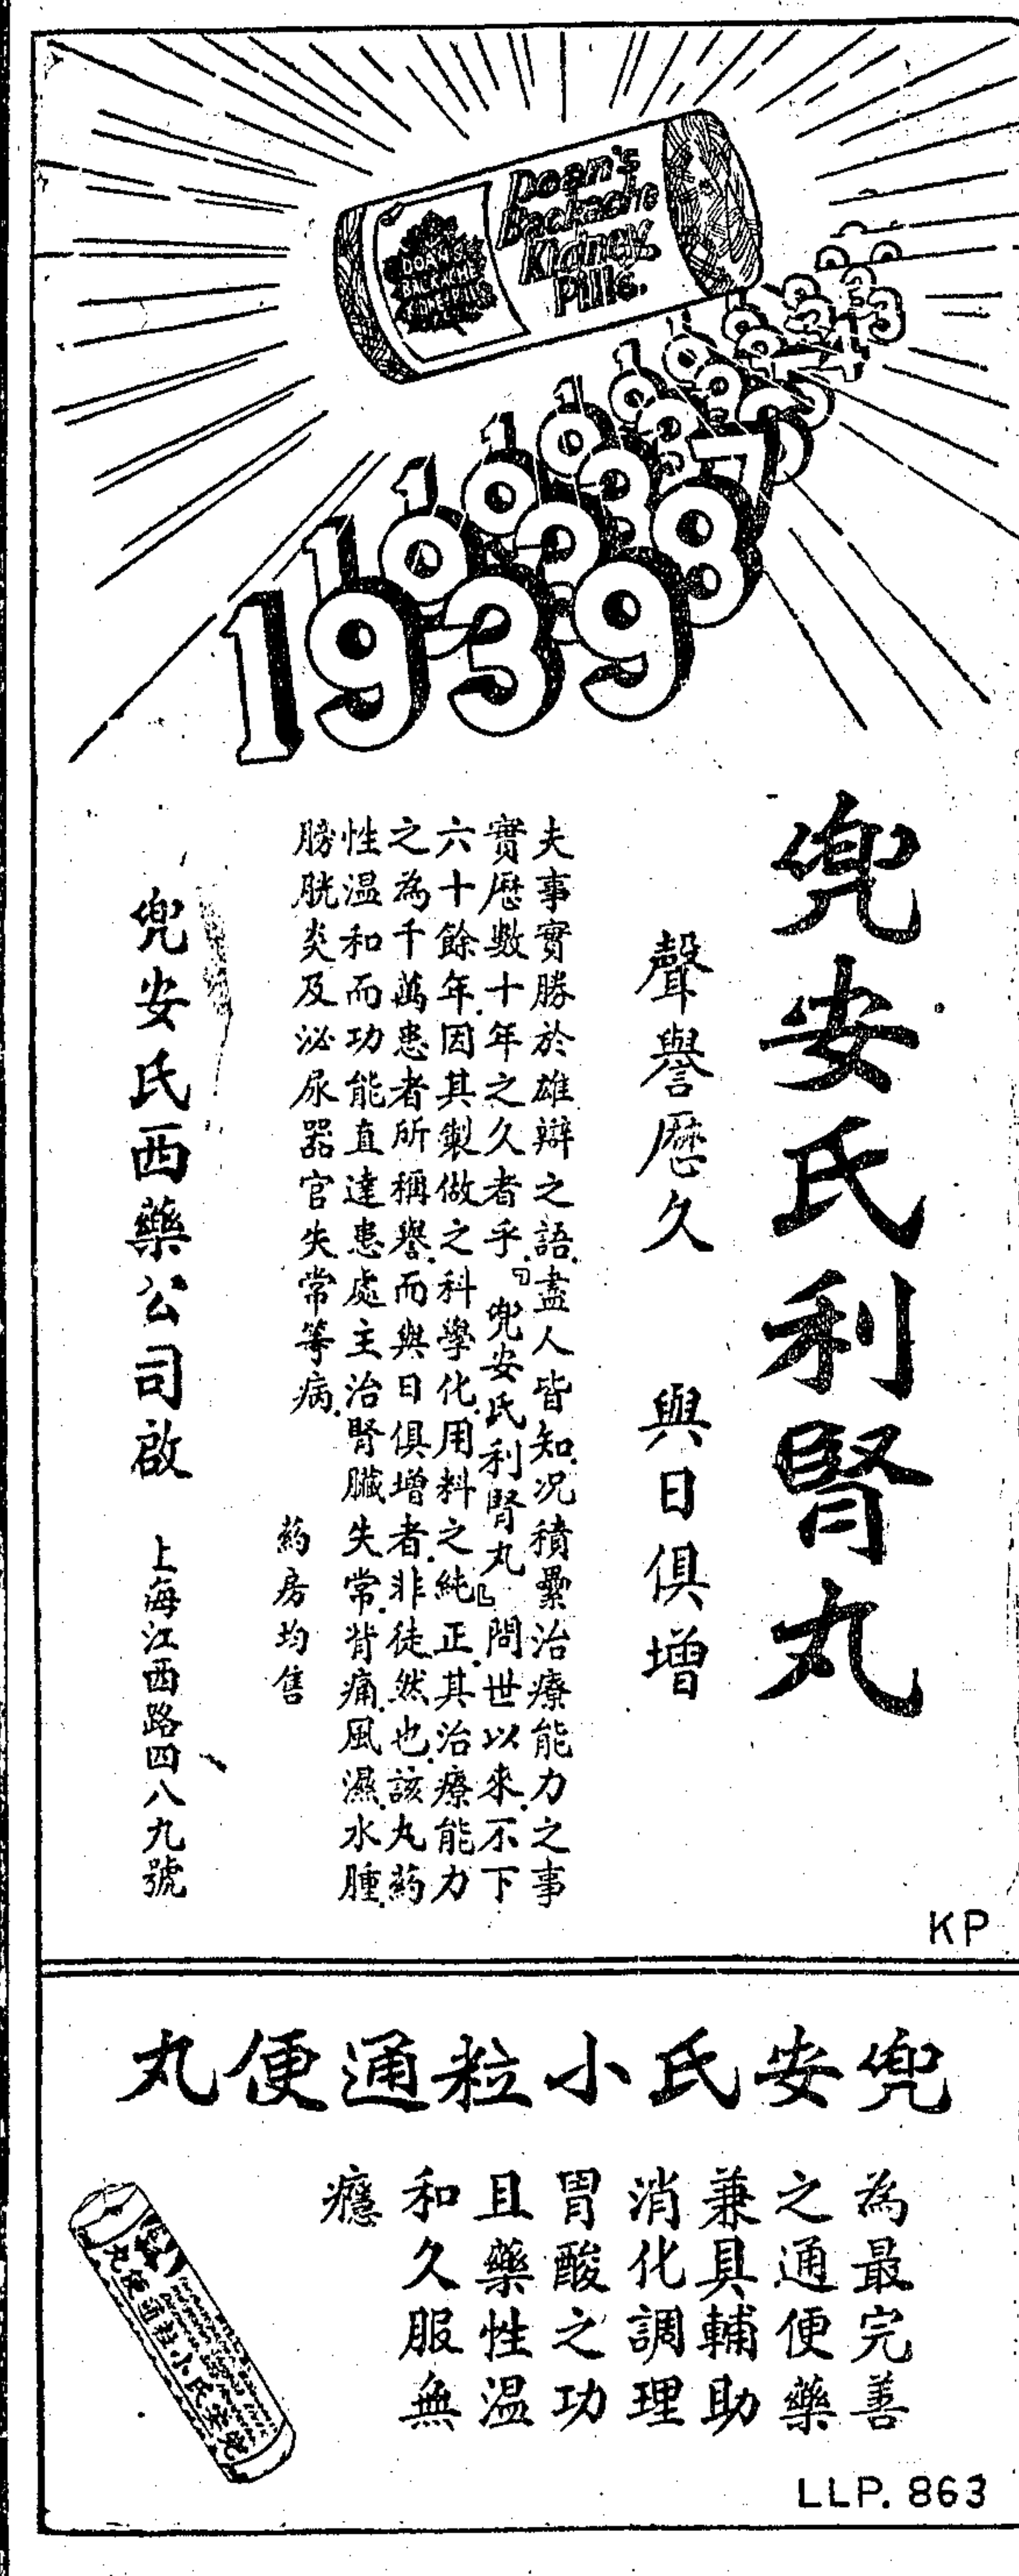 Doan's
Backache
Kidney
Pills.
DOAN'S
BACKACHE
KIDNEY PILLS
1939
兜安氏利腎丸
聲譽歷久　與日俱增
夫事實勝於雄辯之語.盡人皆知.况積纍治療能力之事
實歷數十年之久者乎.「兜安氏利腎丸」問世以來.不下
六十餘年.因其製做之科學化.用料之純正.其治療能力
之為千萬患者所稱譽.而與日俱增者.非徒然也.該丸药
性温和而功能直達患處主治腎臟失常.背痛.風濕.水腫.
膀胱炎及泌尿器官失常等病.
药房均售
兜安氏西藥公司啟　上海江西路四八九號
KP
兜安氏小粒通便丸
為最完善
之通便藥
兼具輔助
消化調理
胃酸之功
且藥性温
和久服無
癮
兜安氏小粒通便丸
LLP. 863